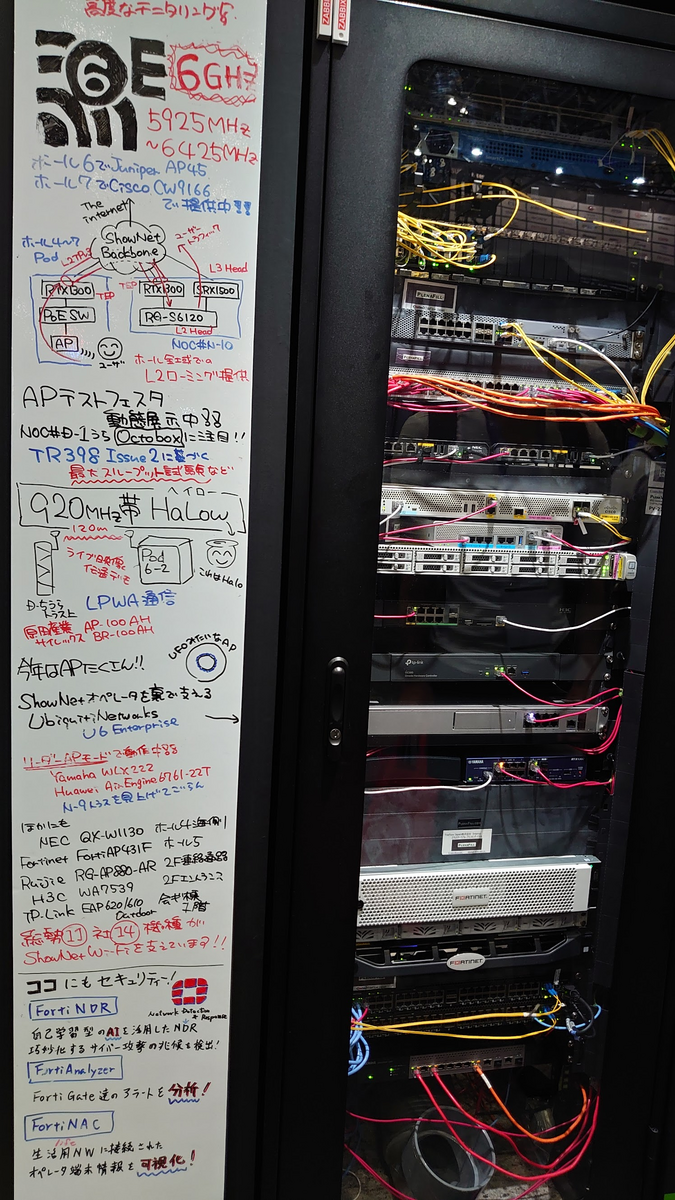 高度なモニタリングを
ZABBIX
ZABBIX
6E
6GHz
5925MHz
~6425MHz
ホール6でJuniper AP45
ホール7でCisco CW9166
で提供中!!!
The internet
ShowNet
Backbone
ユーザートラフィック
ホール4~7
Pod
L2TPv3
L3 Head
RTX1300
TEP
TEP
RTX1300
SRX1500
PoE SW
RG-S6120
L2 Head
AP
ユーザ
NOC#N-10
ホール全域での
L2ローミング提供
APテストフェスタ
動態展示中
NOC#D-1うら Octoboxに注目!!
TR398 Issue2に基づく
最大スループット試験など
ヘイロー
920MHz帯 HaLow
120m
ライブ映像
伝送デモ
Pod
6-2
これはHalo
D-5うら
トラス上
LPWA通信
サイレックス
AP-100AH
BR-100AH
今年はAPたくさん!!
UFOみたいなAP
ShowNetオペレータを裏で支える
Ubiquiti Networks
U6 Enterprise
リーダーAPモードで動作中
Yamaha WLX222
Huawei AirEngine 6761-22T
N-9トラスを見上げてごらん
ほかにも
NEC QX-W1130 ホール4海側
Fortinet FortiAP431F ホール5
Ruijie RG-AP880-AR 2F連絡通路
H3C WA7539 2Fエントランス
TP-Link EAP620/610 会議棟
Outdoor 1階
総勢11社14機種が
ShowNet Wi-Fiを支えています!!
ココにもセキュリティー!
Network Detection
& Response
FortiNDR
自己学習型のAIを活用したNDR
巧妙化するサイバー攻撃の兆候を検出!
FortiAnalyzer
FortiGate達のアラートを分析!
FortiNAC
生活用NWに接続された
life
オペレータ端末情報を可視化!
PLENAFILL
tp-link
YAMAHA
FORTINET
FORTINET